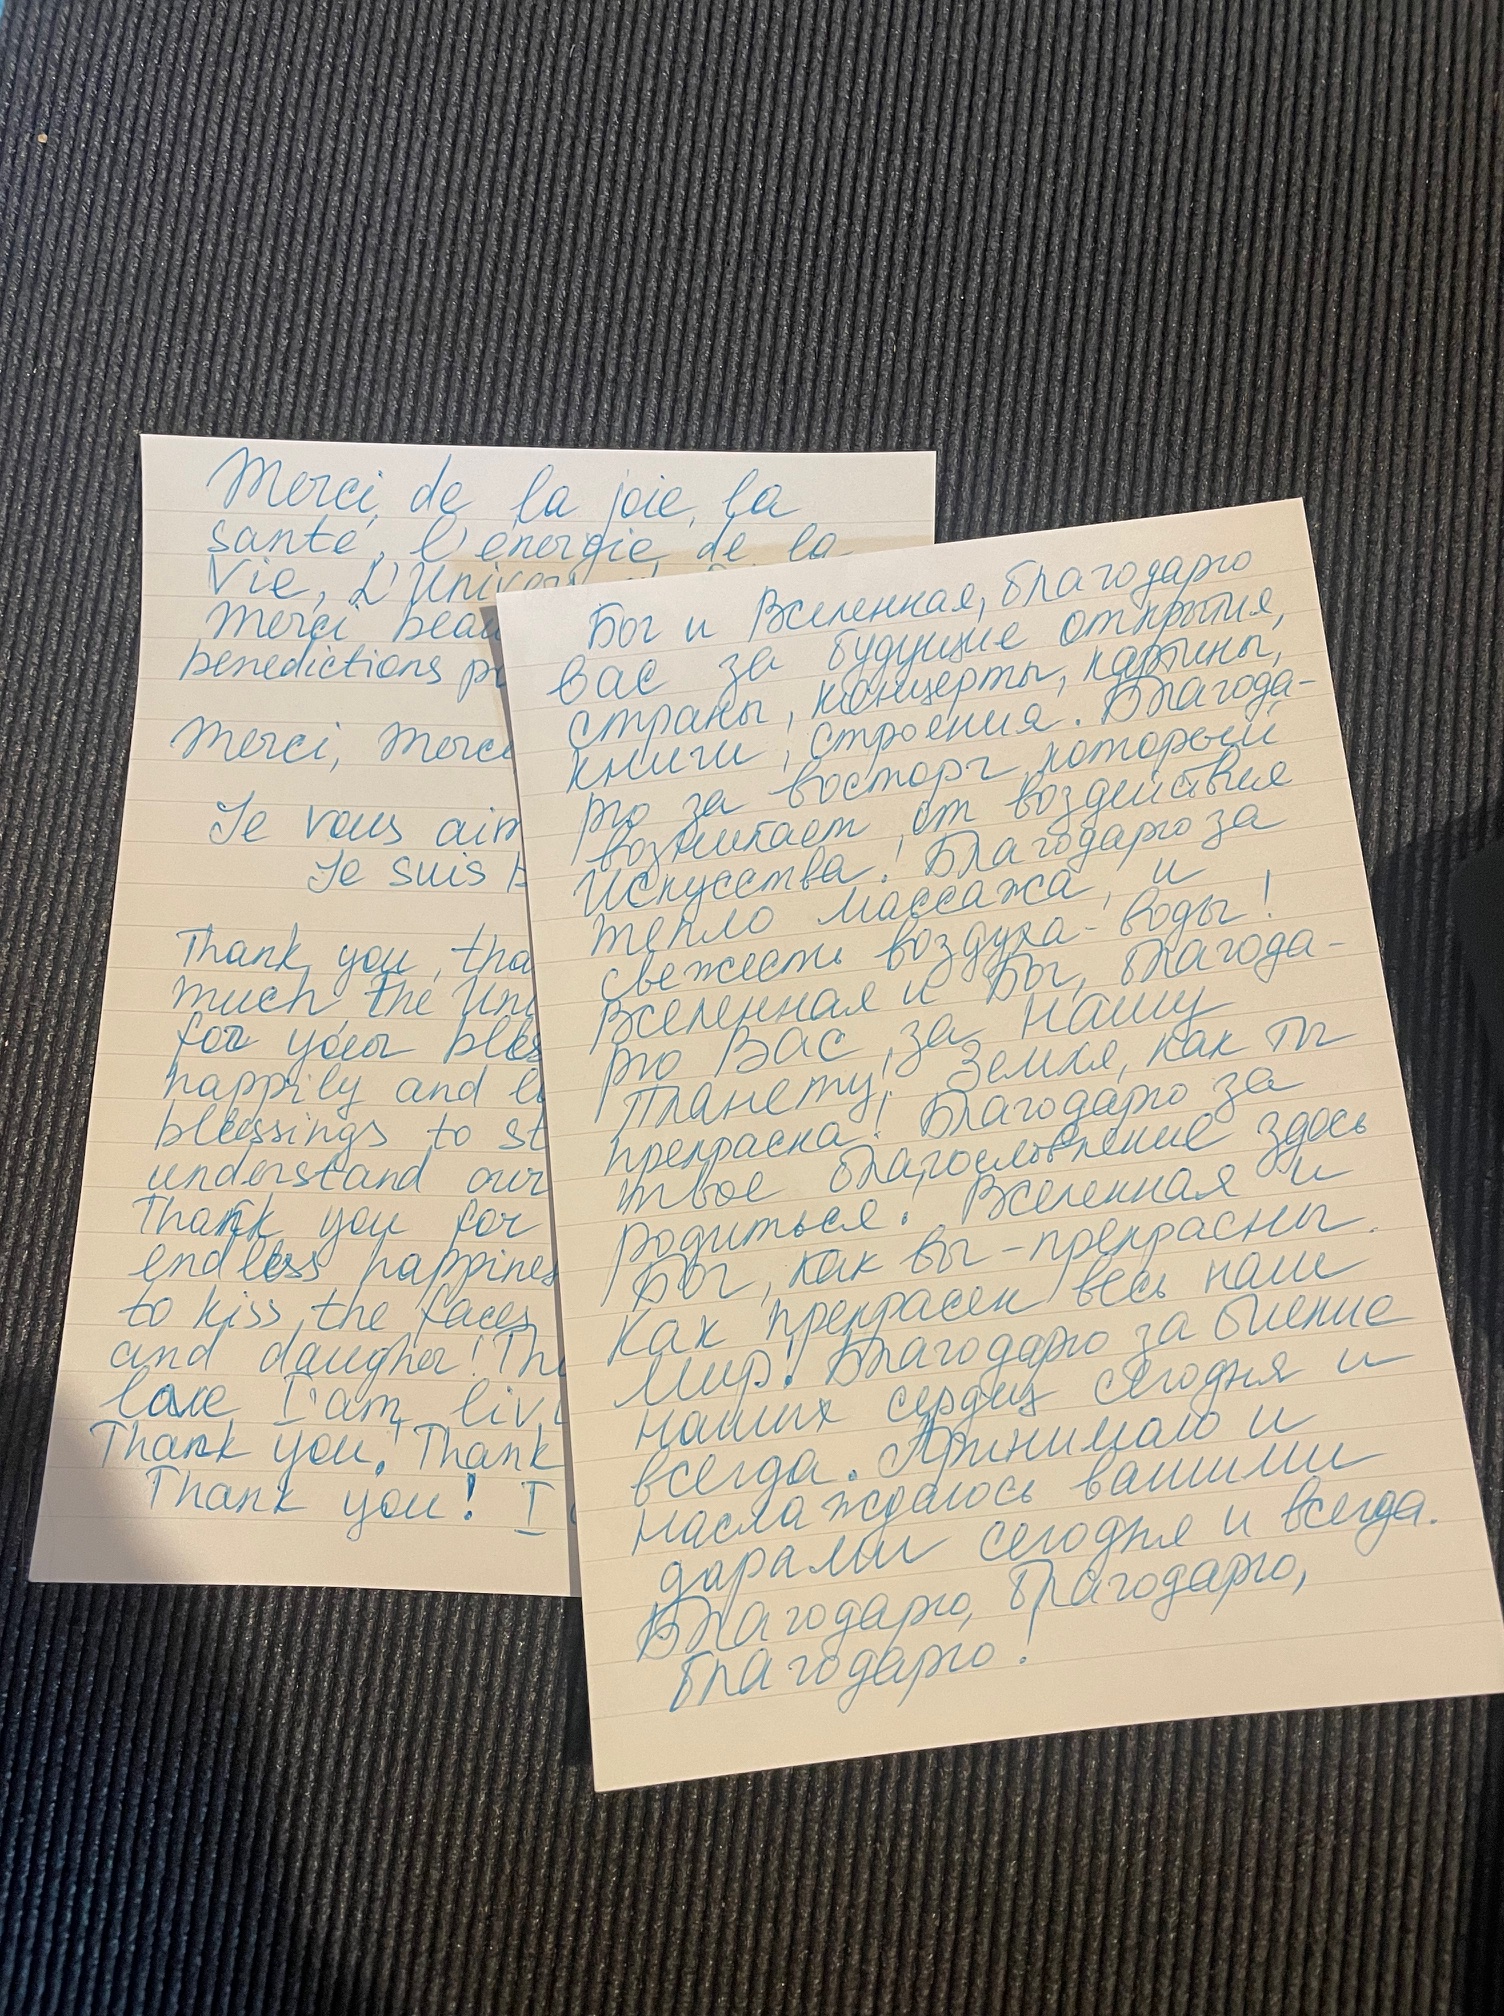 Merci, de la joie, la
santé, l'énergie, de la
Vie, L'Univers
Merci beau
benedictions p
Merci, Merci
Je vous aim
Je suis
Thank you, tha
much the Uni
for your bles
happily and l
blessings to st
understand our
Thank you for
endless happines
to kiss the faces
and daugher! Th
love I'am livi
Thank you! Thank
Thank you! I
Бог и Вселенная, благодарю
вас за будущие открытия,
страны, концерты, картины,
книги, строения. Благода-
рю за восторг, который
возникает от воздействия
Искусства! Благодарю за
тепло массажа, и
свежесть воздуха - воды!
Вселенная и Бог, благода-
рю Вас за Нашу
Планету! Земля, как ты
прекрасна! Благодарю за
твое благословление здесь
родиться! Вселенная и
Бог, как вы - прекрасны.
Как прекрасен весь наш
Мир! Благодарю за биение
наших сердец сегодня и
всегда. Принимаю и
наслаждаюсь вашими
дарами сегодня и всегда.
Благодарю, благодарю,
благодарю!